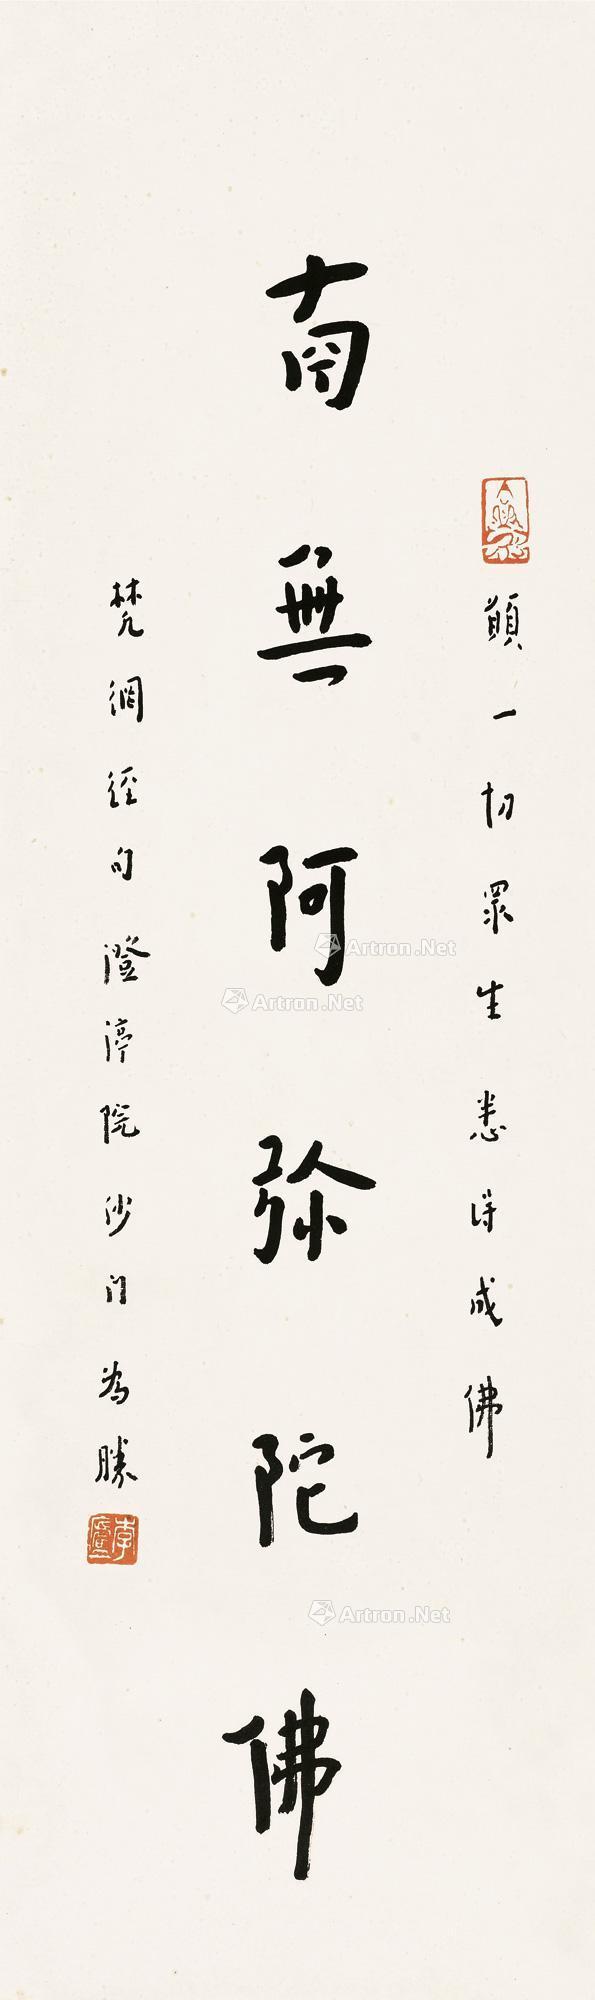 願一切眾生悉得成佛
南無阿弥陀佛
梵網經句澄渟院沙门為勝
李廬
Artron.Net
Artron.Net
Artron.Net